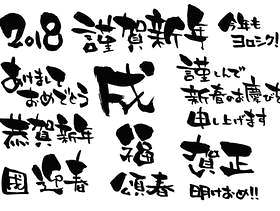 2018
謹賀新年
今年も
ヨロシク!
あけまして
おめでとう
戌
謹しんで
新春のお慶びを
申し上げます
恭賀新年
福
賀正
迎春
頌春
明けおめ!!